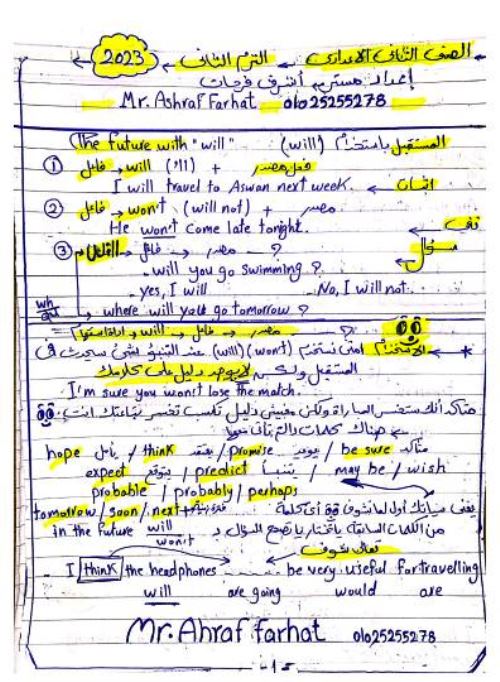 الصف الثاني الاعدادى ← الترم الثانى ← 2023
إعداد مستر/ أشرف فرحات
Mr. Ashraf Farhat 01025255278
The future with "will" (will) المستقبل باستخدام
① فاعل → will ('ll) + فعل مصدر
I will travel to Aswan next week. ← اثبات
② فاعل → won't (will not) + مصدر
He won't come late tonight. ← نفى
③ فاعل → مصدر → ?
سؤال
- will you go swimming ?
- yes, I will - No, I will not.
wh/qst → where will you go tomorrow ?
? ← مصدر ← فاعل ← will ←
* الاستخدام امتى نستخدم (will) (won't) عند التنبؤ بشئ سيحدث فى
المستقبل ولكن لا يوجد دليل على كلامك
I'm sure you won't lose the match.
متأكد أنك ستخسر المباراة ولكن مفيش دليل
هناك كلمات دالة
hope يأمل / think يعتقد / promise يوعد / be sure متأكد
expect يتوقع / predict يتنبأ / may be / wish
probable / probably / perhaps
tomorrow / soon / next + فترة زمنية
يعنى أول لما تشوف أى كلمة
in the future من الكلمات السابقة will won't
تعال نشوف
- I think the headphones ........ be very useful for travelling
will are going would are
Mr. Ahraf farhat 01025255278
- 1 -